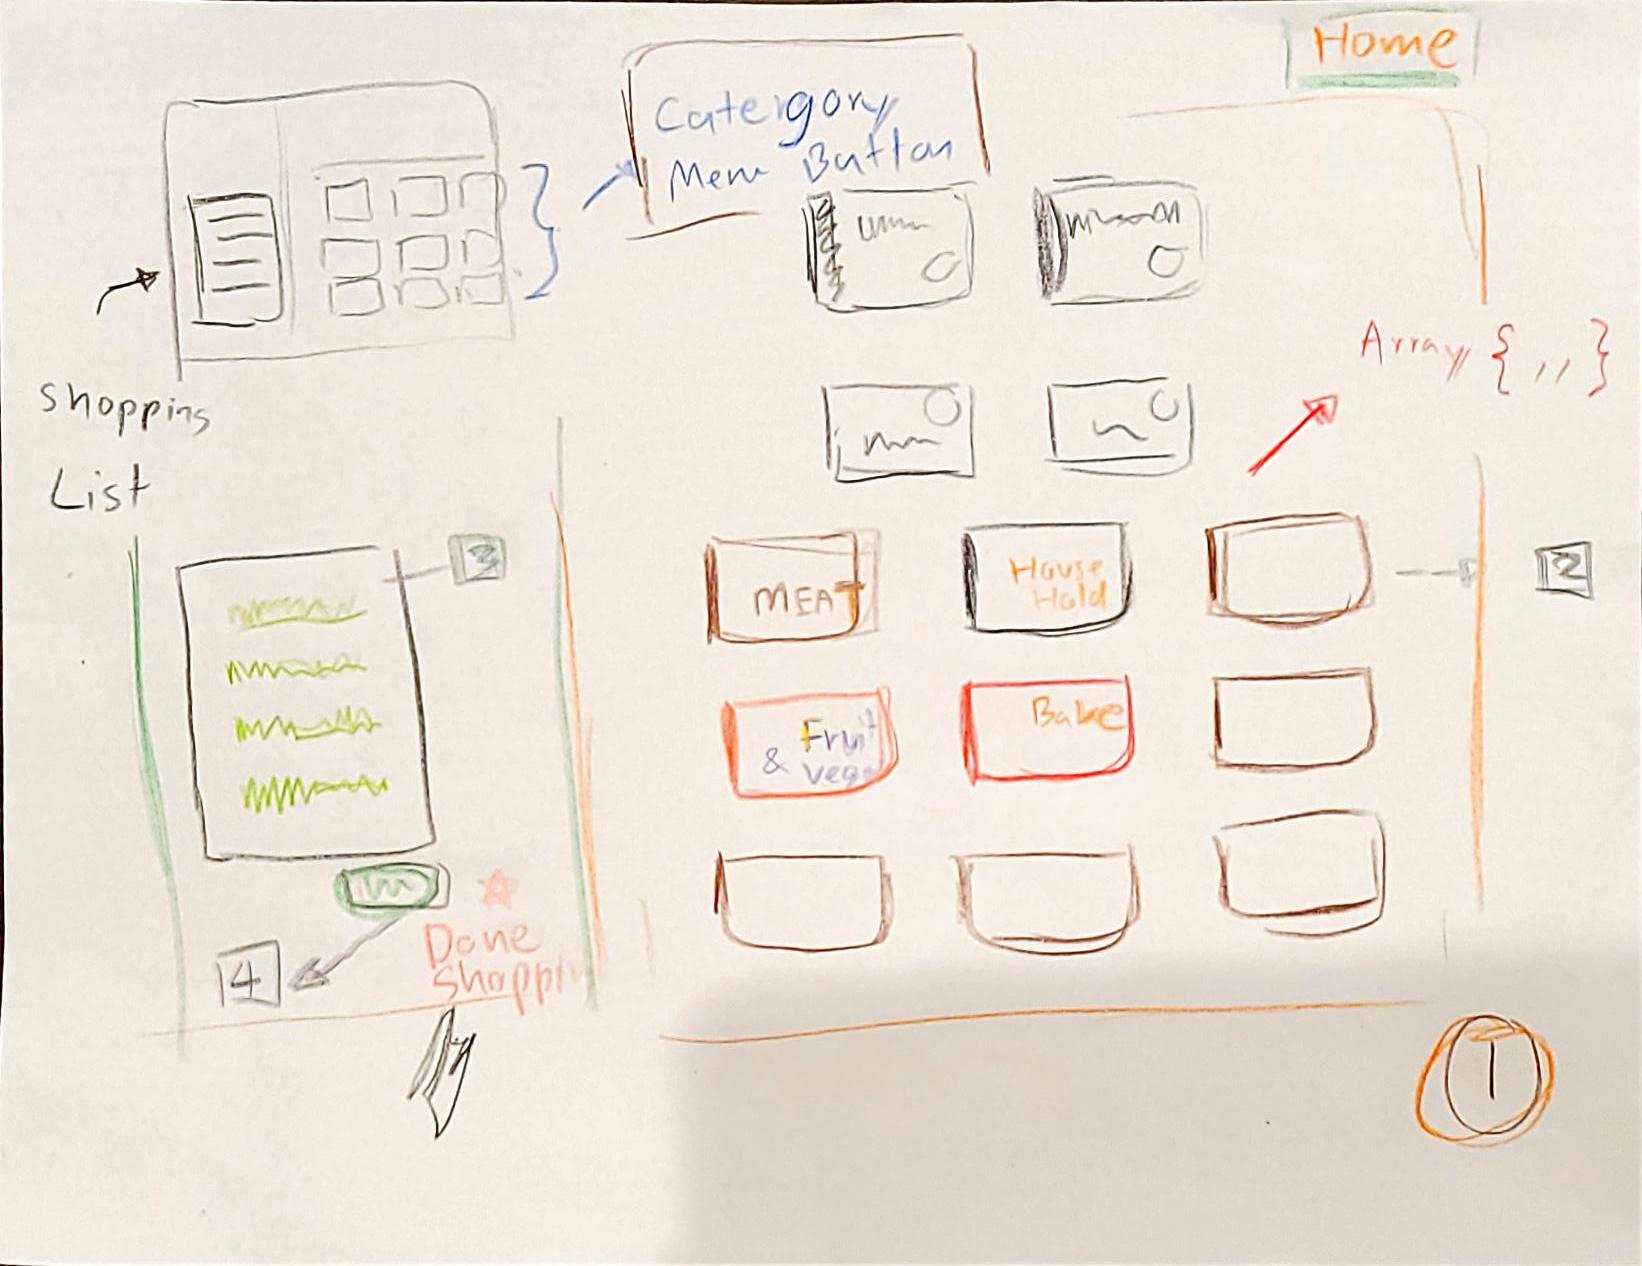 Home
Catergory
Menu Button
Array { , , }
Shopping
List
3
MEAT
House
Hold
2
Fruit
& vege
Bake
Done
Shoppin
4
1